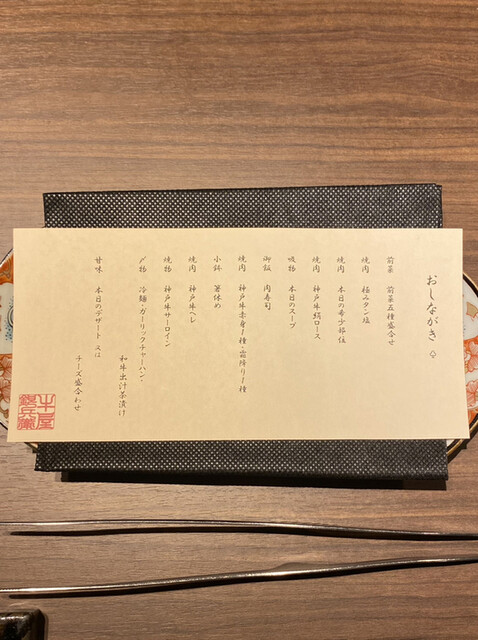 おしながき
前菜 前菜五種盛合せ
焼肉 極みタン塩
焼肉 本日の希少部位
焼肉 神戸牛絹ロース
吸物 本日のスープ
御飯 肉寿司
焼肉 神戸牛赤身1種・霜降り1種
小鉢 箸休め
焼肉 神戸牛ヘレ
焼物 神戸牛サーロイン
〆物 冷麺・ガーリックチャーハン・
和牛出汁茶漬け
甘味 本日のデザート 又は
チーズ盛合わせ
牛屋
銀兵衛